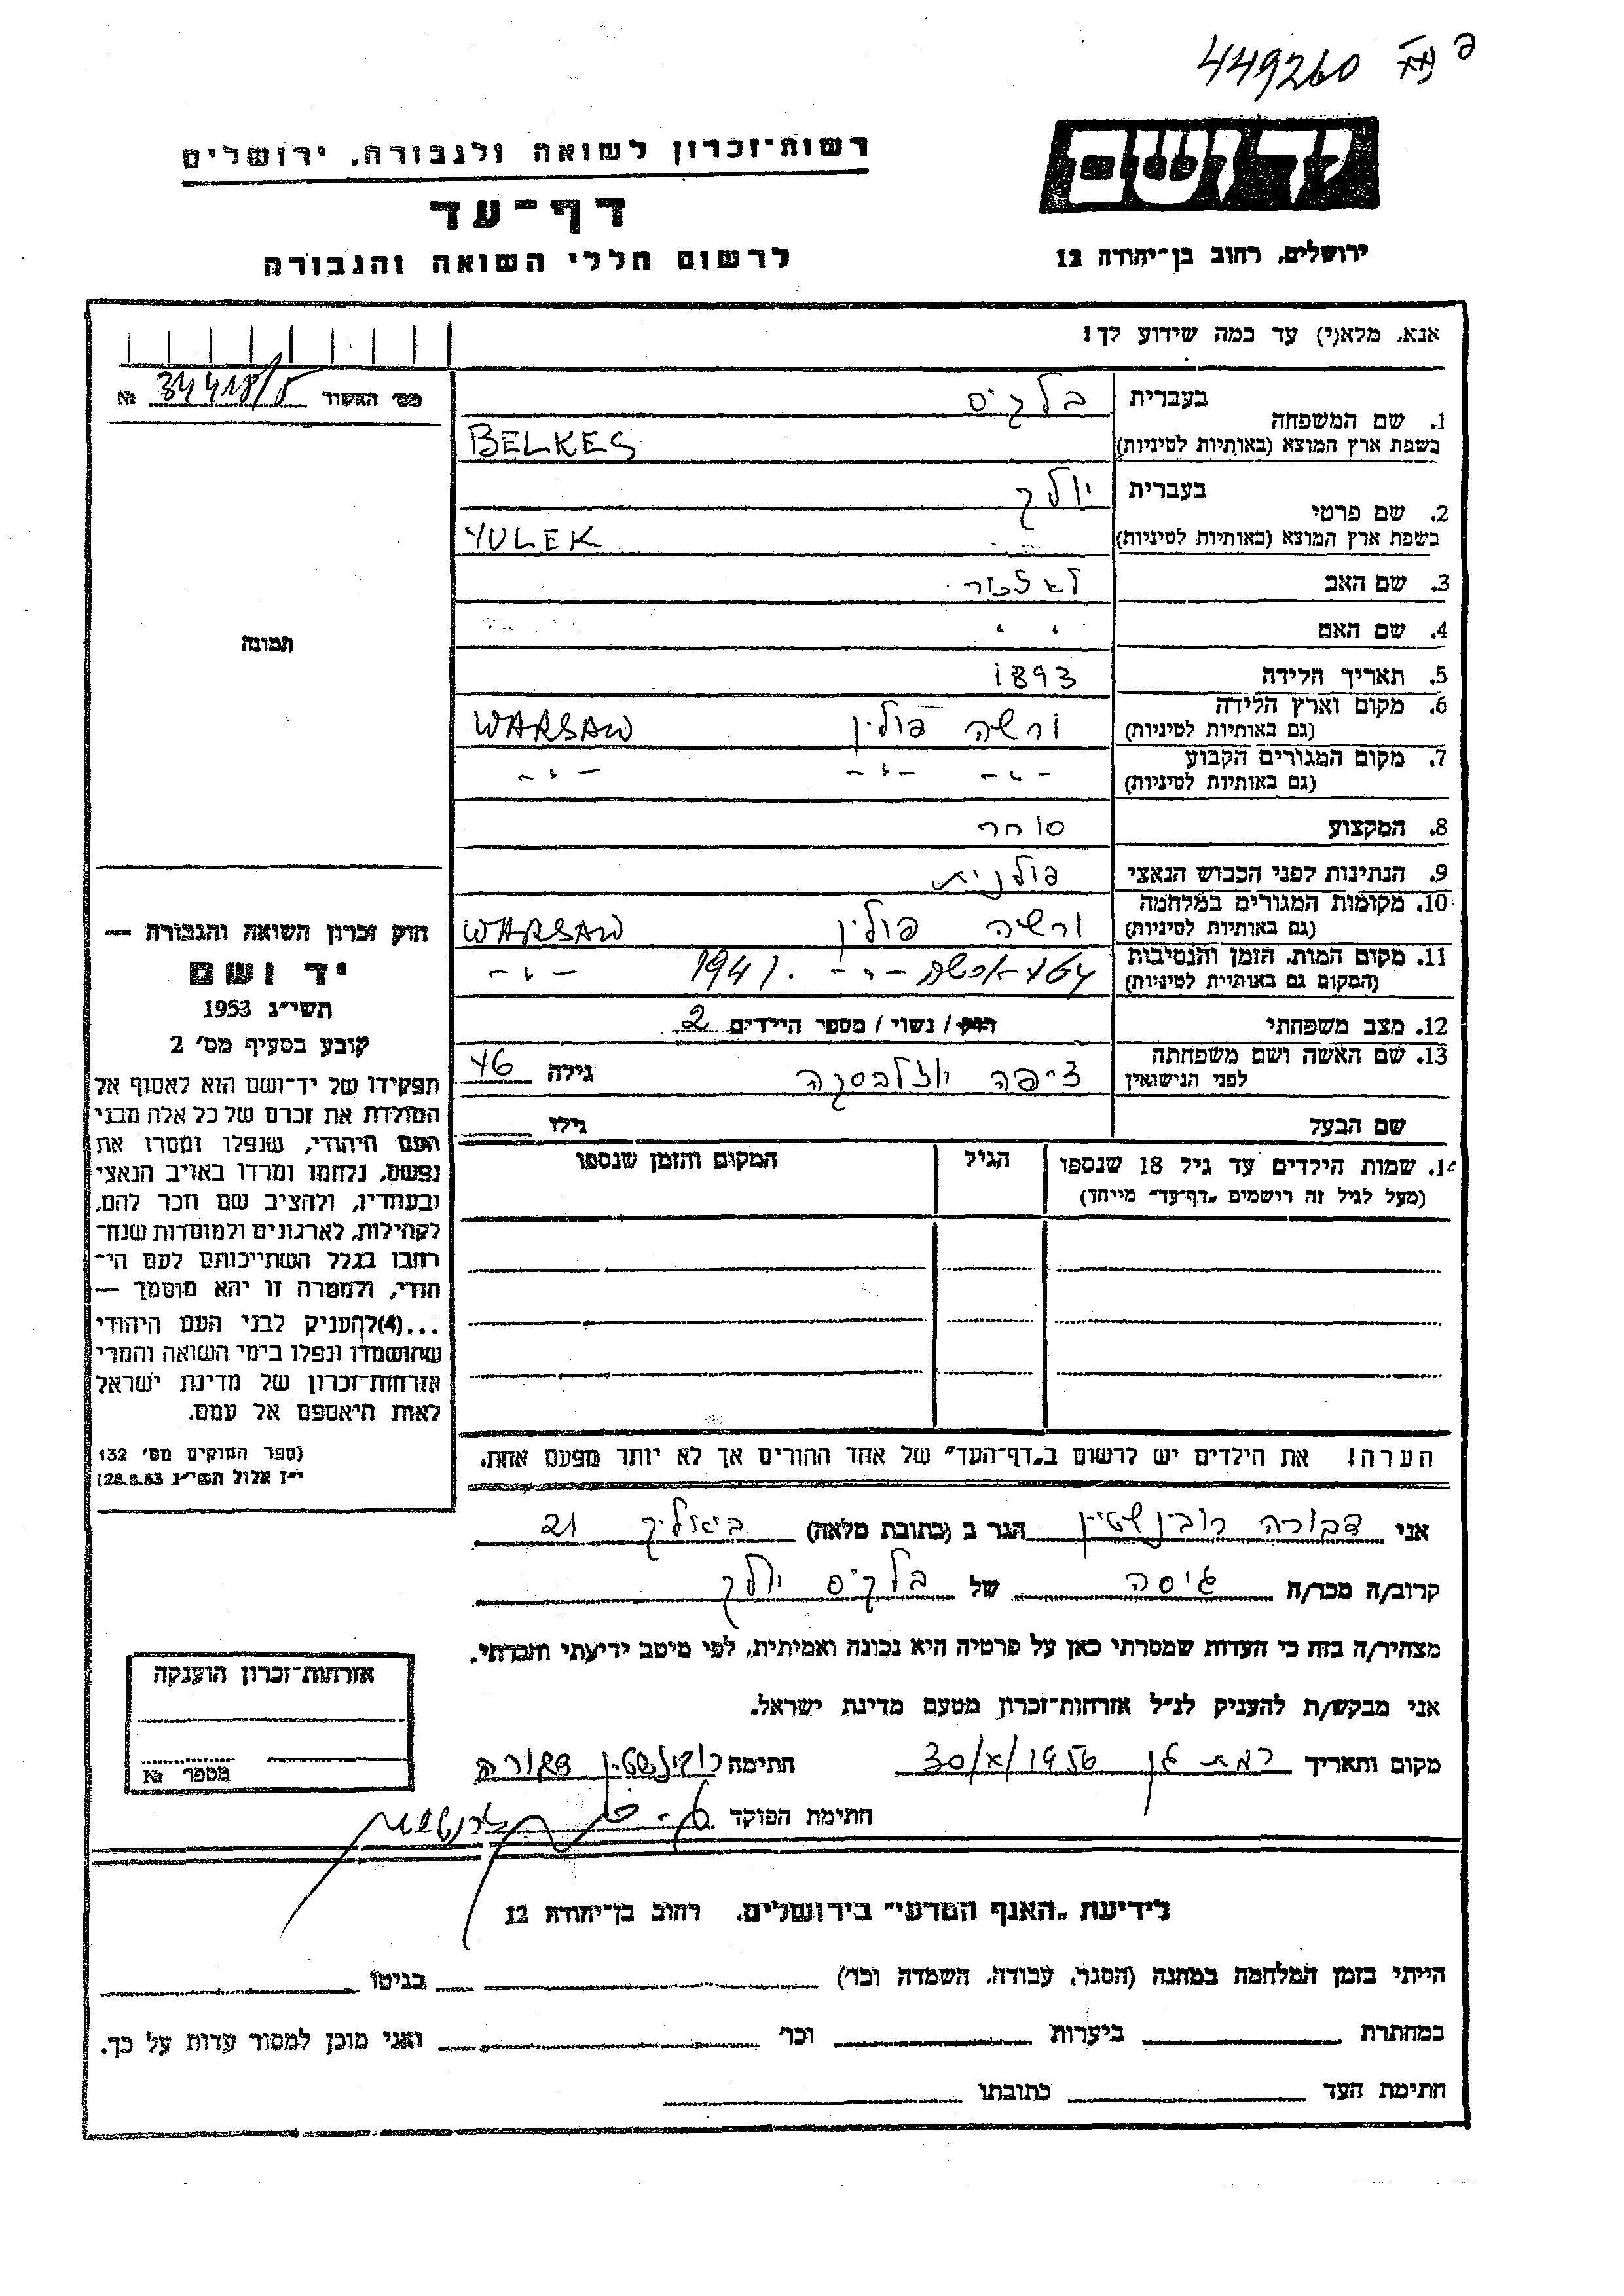 449260
יד ושם
רשות־זכרון לשואה ולגבורה, ירושלים
דף־עד
לרשום חללי השואה והגבורה
ירושלים, רחוב בן־יהודה 12
אנא, מלא(י) עד כמה שידוע לך:
מס׳ האשור № 34418/5
1. שם המשפחה בעברית בלקיס
בשפת ארץ המוצא (באותיות לטיניות) BELKES
2. שם פרטי בעברית יולק
בשפת ארץ המוצא (באותיות לטיניות) YULEK
3. שם האב
4. שם האם
5. תאריך הלידה 1893
6. מקום וארץ הלידה ורשה פולין WARSAW
(גם באותיות לטיניות)
7. מקום המגורים הקבוע -"- -"- -"-
(גם באותיות לטיניות)
8. המקצוע סוחר
9. הנתינות לפני הכבוש הנאצי פולנית
10. מקומות המגורים במלחמה ורשה פולין WARSAW
(גם באותיות לטיניות)
11. מקום המות, הזמן והנסיבות -"- 1941. -"-
(המקום גם באותיית לטיניות)
12. מצב משפחתי רווק / נשוי / מספר הילדים 2
13. שם האשה ושם משפחתה ציפה גילה 46
לפני הנישואין
שם הבעל גילו
14. שמות הילדים עד גיל 18 שנספו הגיל המקום והזמן שנספו
(מעל לגיל זה רושמים „דף־עד״ מייחד)
הערה: את הילדים יש לרשום ב„דף־העד״ של אחד ההורים אך לא יותר מפעם אחת.
תמונה
חוק זכרון השואה והגבורה —
יד ושם
תשי״ג 1953
קובע בסעיף מס׳ 2
תפקידו של יד־ושם הוא לאסוף אל
המולדת את זכרם של כל אלה מבני
העם היהודי, שנפלו ומסרו את
נפשם, נלחמו ומרדו באויב הנאצי
ובעוזריו, ולהציב שם וזכר להם,
לקהילות, לארגונים ולמוסדות שנח־
רחבו בגלל השתייכותם לעם הי־
הודי, ולמטרה זו יהא מוסמך —
...(4) להעניק לבני העם היהודי
שהושמדו ונפלו בימי השואה והמרי
אזרחות־זכרון של מדינת ישראל
לאות היאספם אל עמם.
(ספר החוקים מס׳ 132
י״ז אלול תשי״ג 28.8.53)
אני דבורה רובינשטיין הגר ב (כתובת מלאה) ביאליק 21
קרוב/ה מכר/ה גיסה של בלקיס יולק
מצהיר/ה בזה כי העדות שמסרתי כאן על פרטיה היא נכונה ואמיתית, לפי מיטב ידיעתי והכרתי.
אני מבקש/ת להעניק לנ״ל אזרחות־זכרון מטעם מדינת ישראל.
מקום ותאריך רמת גן 30/X/1956 חתימה רובינשטיין דבורה
חתימת הפוקד
אזרחות־זכרון הוענקה
מספר №
לידיעת „האגף המדעי״ בירושלים, רחוב בן־יהודה 12
הייתי בזמן המלחמה במחנה (הסגר, עבודה, השמדה וכו׳) בגיטו
במחתרת ביערות וכו׳ ואני מוכן למסור עדות על כך.
חתימת העד כתובתו